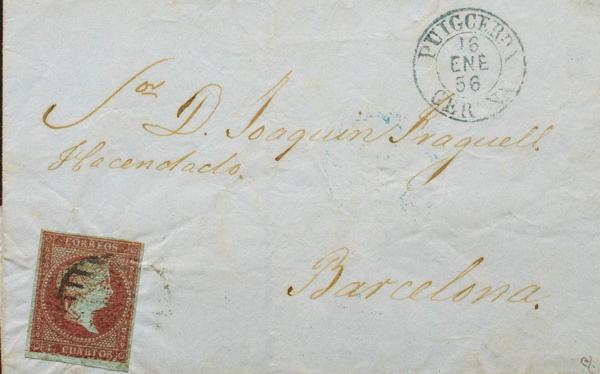 PUIGCERDA
16
ENE
56
GERONA
Sor D. Joaquin Fraguell.
Hacendado.
Barcelona.
CORREOS
4 CUARTOS